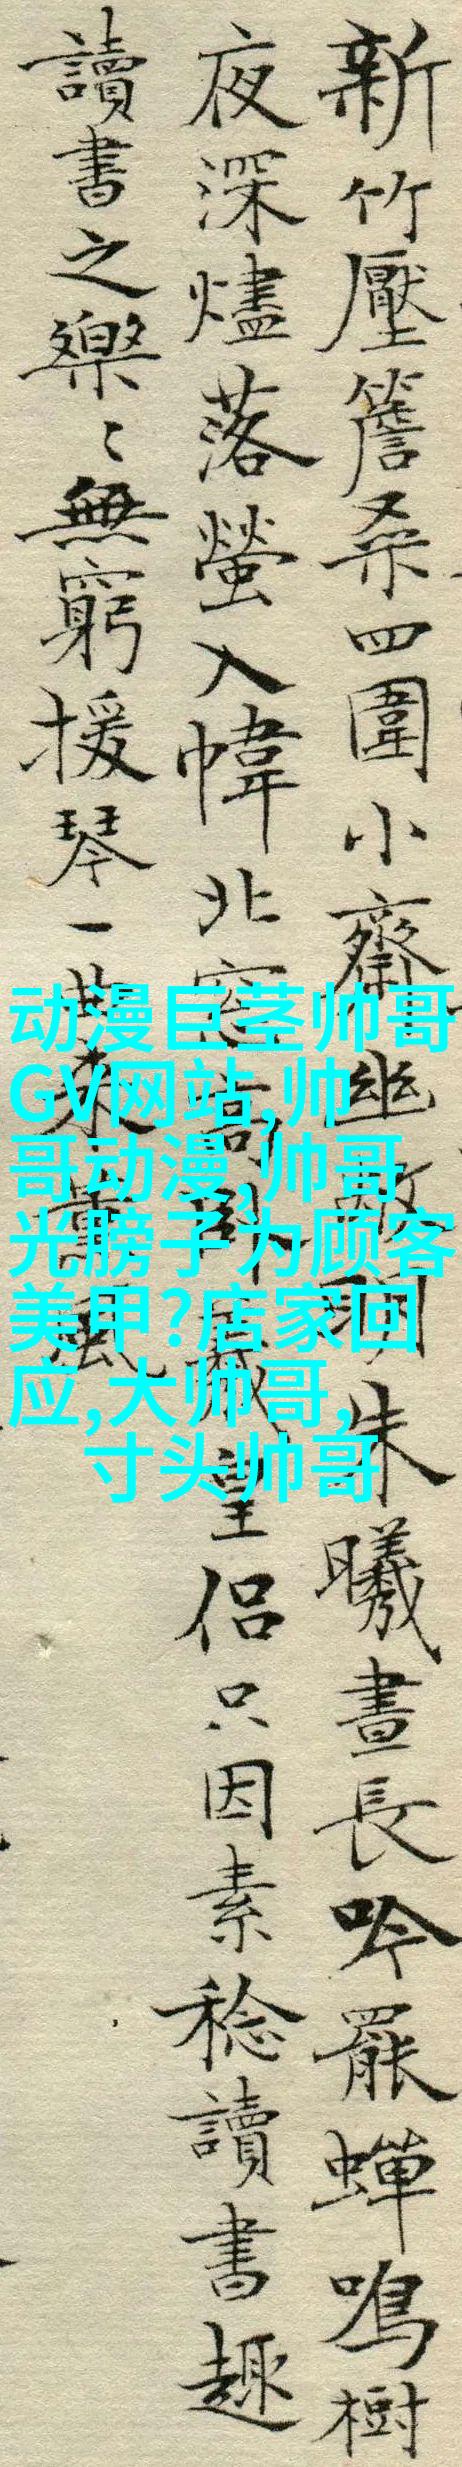 新竹壓簷桑四圍小齋幽敞明朱曦晝長吟罷蟬鳴樹
夜深燼落螢入幃北窓高臥羲皇侶只因素稔讀書趣
讀書之樂〻無窮援琴一曲來薰風
动漫巨茎帅哥
GV网站,帅
哥动漫,帅哥
光膀子为顾客
美甲?店家回
应,大帅哥,
寸头帅哥